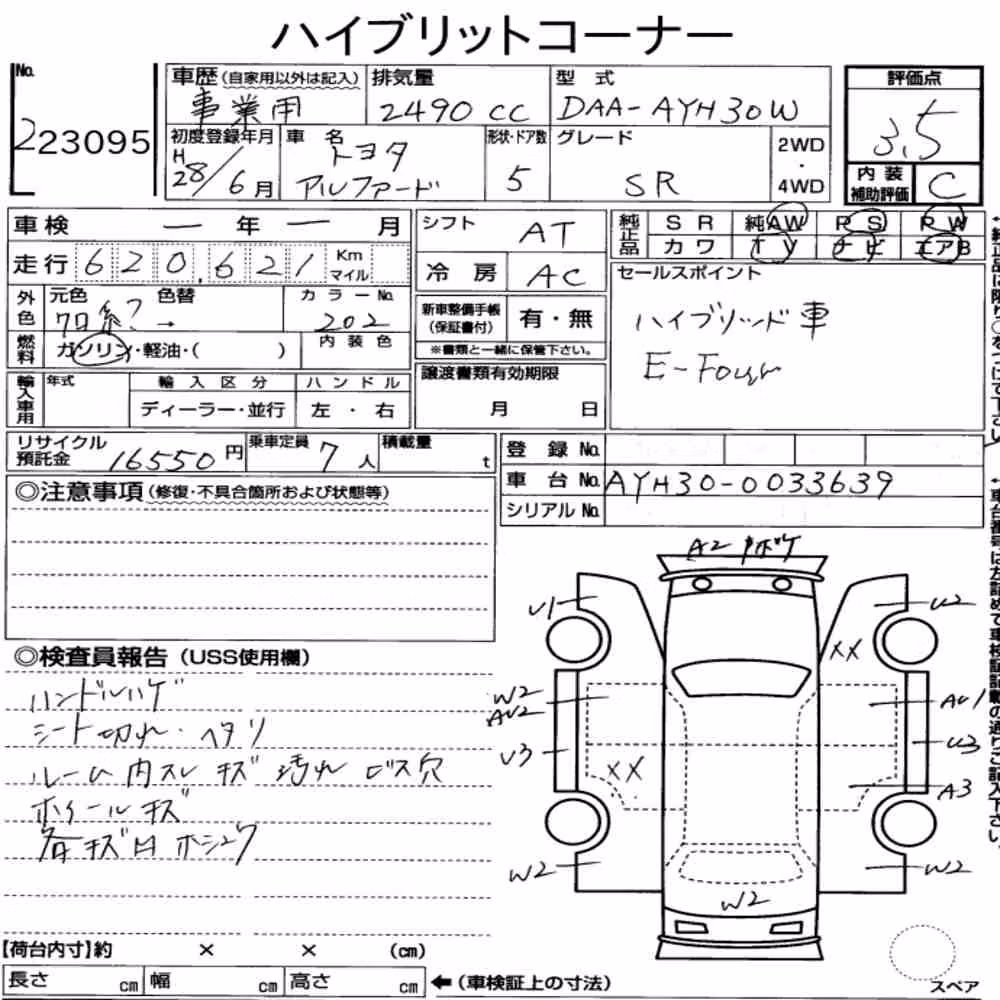 ハイブリットコーナー
No. 223095
車歴(自家用以外は記入) 事業用
排気量 2490cc
型式 DAA-AYH30W
評価点 3.5
初度登録年月 H28/6月
車名 トヨタ アルファード
形状・ドア数 5
グレード SR
2WD・4WD
内装補助評価 C
車検 ー年ー月
シフト AT
純正品 SR 純AW PS PW
カワ TV ナビ エアB
走行 620,621 Km マイル
冷房 AC
セールスポイント
ハイブリッド車
E-Four
外色 元色 色替 カラーNo.
クロ系?→ 202
新車整備手帳(保証書付) 有・無
※書類と一緒に保管下さい。
燃料 ガソリン・軽油・( ) 内装色
譲渡書類有効期限
月 日
輸入車用 年式 輸入区分 ハンドル
ディーラー・並行 左・右
リサイクル預託金 16550円
乗車定員 7人
積載量 t
登録No.
車台No. AYH30-0033639
シリアルNo.
◎注意事項(修復・不具合箇所および状態等)
◎検査員報告(USS使用欄)
ハンドルハゲ
シート切れ・ヘタリ
ルーム内スレ キズ 汚れ ビス穴
ホイールキズ
各キズ凹 ホシュウ
A2 トボケ
U1
U2
XX
W2
AU2
AU1
U3
U3
XX
A3
W2
W2
W2
【荷台内寸】約 × × (cm)
長さ cm 幅 cm 高さ cm ←(車検証上の寸法)
スペア
←純正品に限り○をつけて下さい。
←車台番号は左詰めで車検証記載の通りご記入下さい。